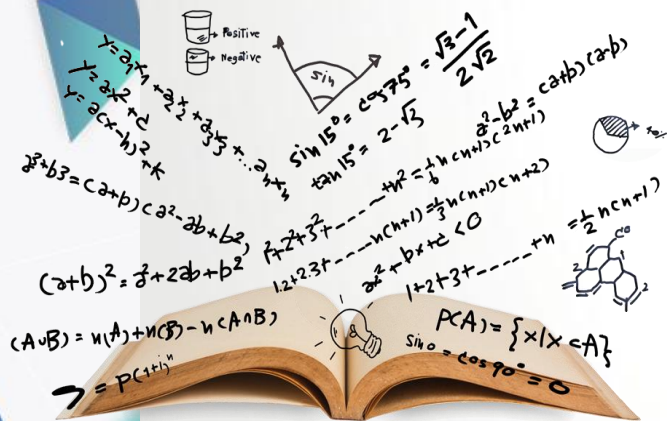 Positive
Negative
y=a₁x₁+a₂x₂+a₃x₃+...aₙxₙ
y=ax²+c
y=a(x-h)²+k
sin
sin15°=cos75°=√3-1/2√2
tan15°=2-√3
a²-b²=(a+b)(a-b)
a³+b³=(a+b)(a²-ab+b²)
1²+2²+3²+------+n²=1/6n(n+1)(2n+1)
1.2+2.3+----n(n+1)=1/3n(n+1)(n+2)
ax²+bx+c<0
1+2+3+------+n=1/2n(n+1)
(a+b)²=a²+2ab+b²
(A∪B)=n(A)+n(B)-n(A∩B)
P(A)={x|x⊂A}
sin0=cos90°=0